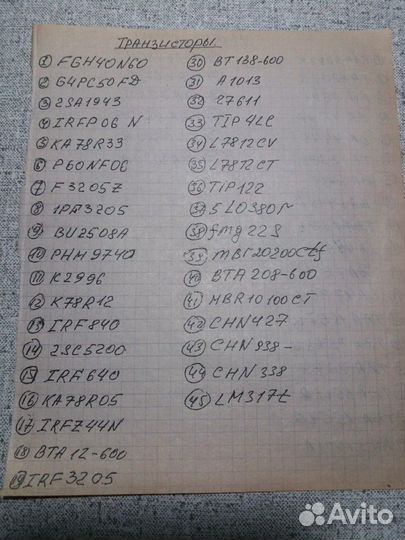 Транзисторы
1 FGH40N60
2 G4PC50FD
3 2SA1943
4 IRFP06 N
5 KA78R33
6 P60NF06
7 F3205Z
8 1PF3205
9 BU2508A
10 PHM9740
10 K2996
12 K78R12
13 IRF840
14 2SC5200
15 IRF640
16 KA78R05
17 IRFZ44N
18 BTA12-600
19 IRF3205
30 BT138-600
31 A1013
32 27611
33 TIP41C
34 L7812CV
35 L7812CT
36 TIP122
37 5L0380r
38 fmg22S
39 mBr20200ctg
40 BTA208-600
41 MBR10100CT
42 CHN427
43 CHN938-
44 CHN338
45 LM317t
Avito